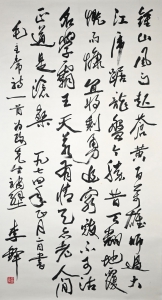 鍾山风雨起蒼黄百万雄师过大
江虎踞龙盤今勝昔天翻地覆
慨而慷宜将剩勇追窮寇不可沽
名學霸王天若有情天亦老人间
正道是滄桑 一九七四年正月
毛主席詩一首 先生 李鐸